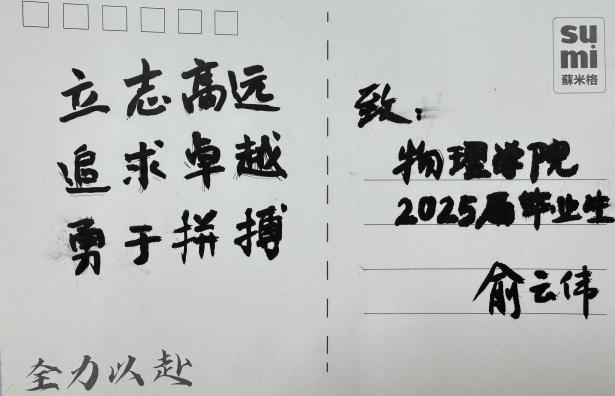 立志高远
追求卓越
勇于拼搏
全力以赴
su
mi
蘇米格
致：
物理学院
2025届毕业生
俞云伟